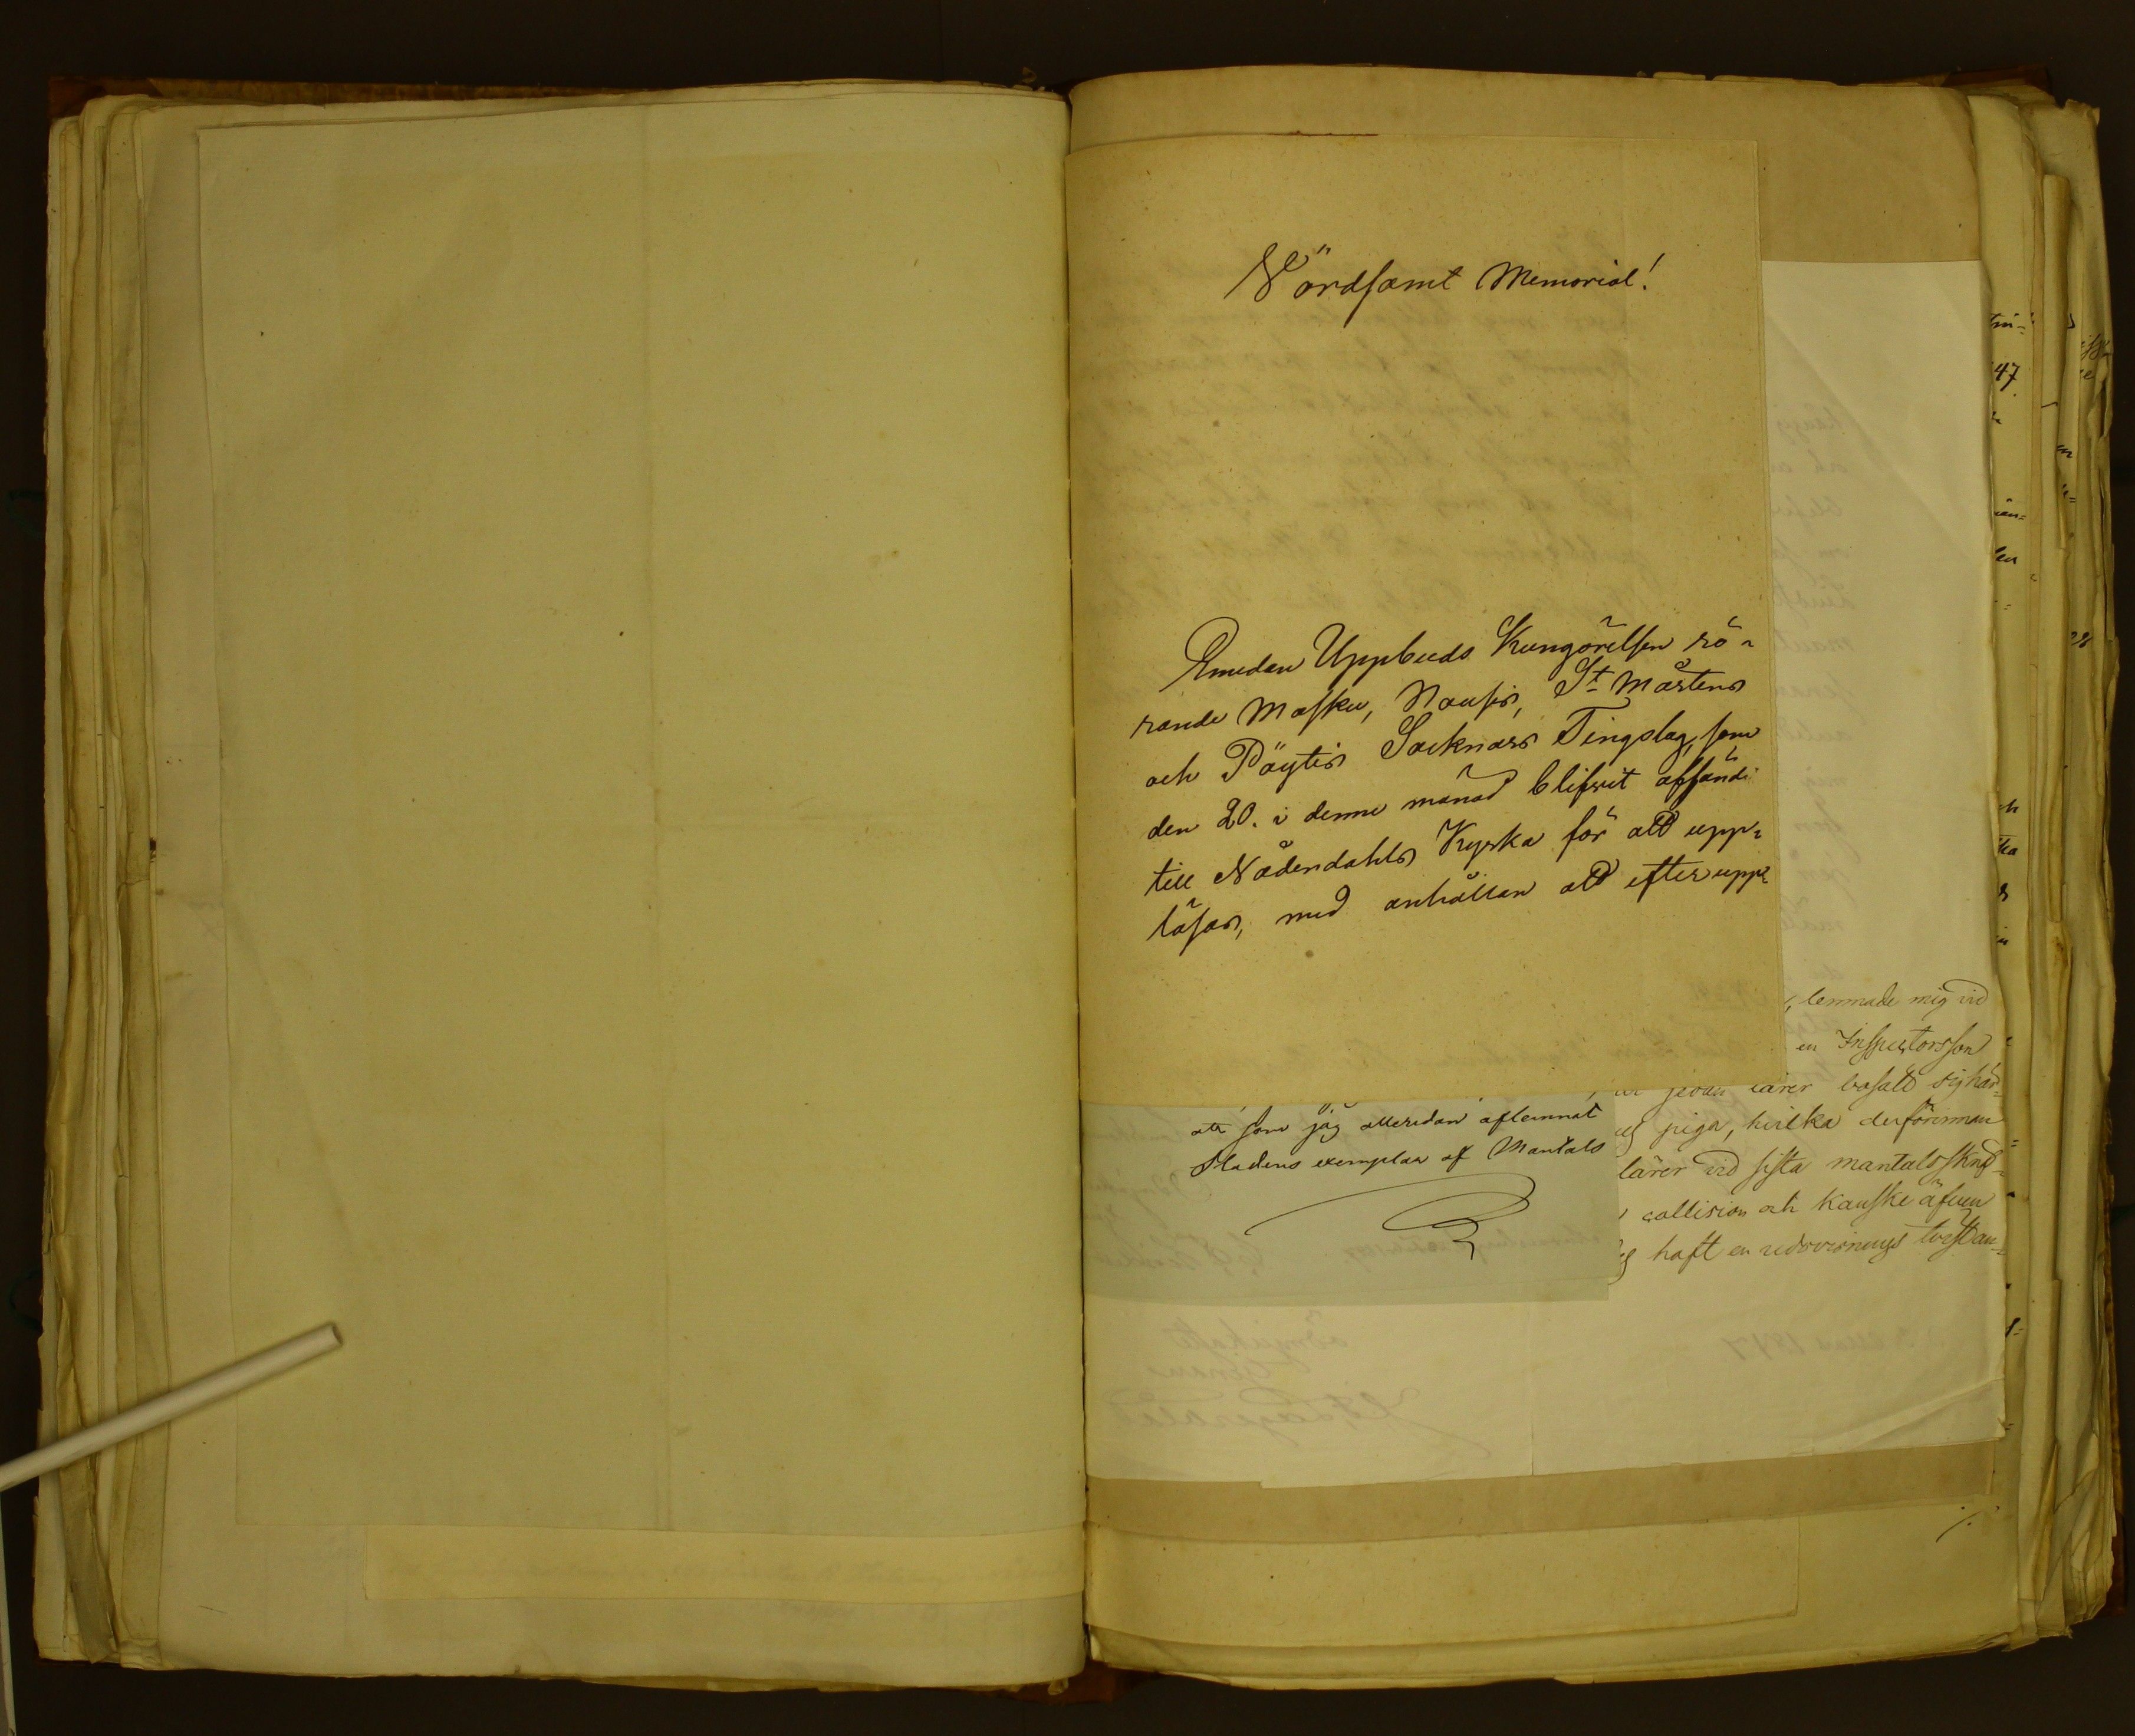 Vördsamt Memorial!
Emedan Uppbuds Kungörelsen rö-
rande Masku, Nousis, St Mårtens
och Pöytis Socknars Tingslag, som
den 20. i denne månad blifvit afsändt
till Nådendahls Kyrka för att upp-
läsas, med anhållan att efter upp-
, lemnade mig vid
en Inspectorsson
lärer bosatt sig här
piga, hvilka derförinnan
lärer vid sista mantalsskrif-
collision och kanske äfven
haft en redovisnings tvist an-
att som jag alleredan aflemnat
Stadens exemplar af Mantals
47